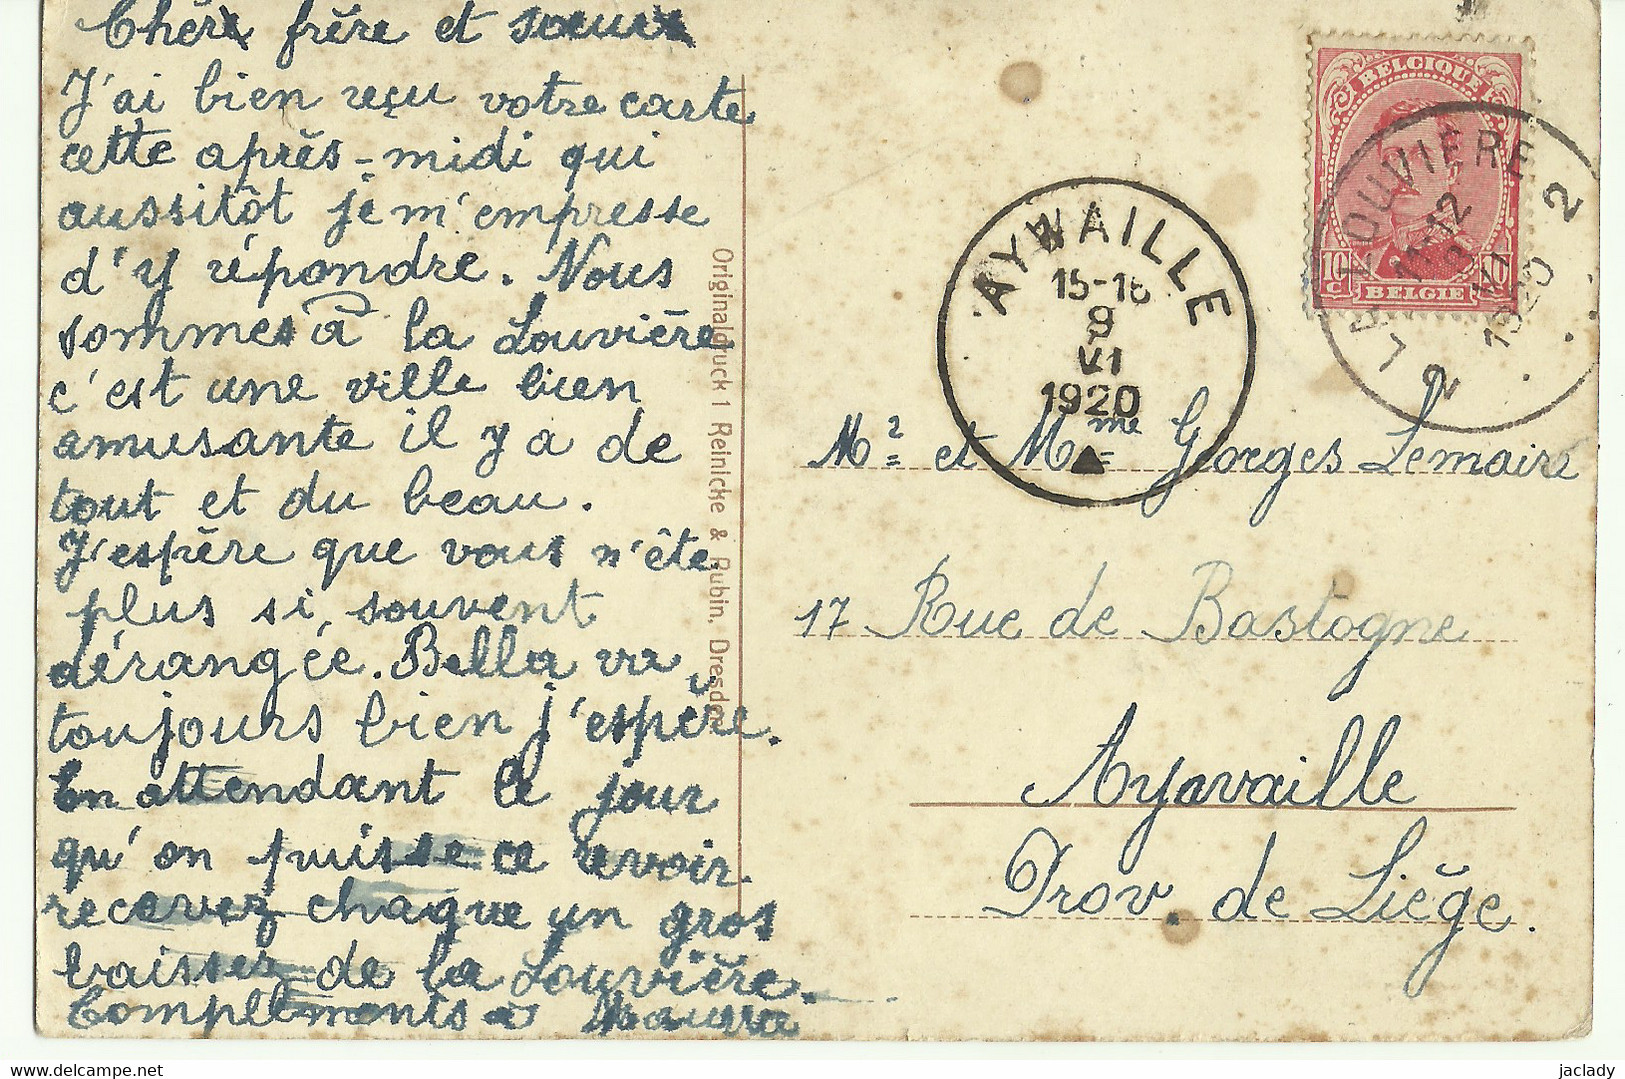 Chère frère et soeur
J'ai bien reçu votre carte
cette après-midi qui
aussitôt je m'empresse
d'y répondre. Nous
sommes à la Louvière
c'est une ville bien
amusante il y a de
tout et du beau.
J'espère que vous n'ête
plus si souvent
dérangée. Bella va
toujours bien j'espère.
En attendant le jour
qu'on puisse ce revoir.
recevez chaque un gros
baissez de la Louvière.
Compléments à
Originaldruck 1 Reinicke & Rubin, Dresden
BELGIQUE
10 C
10 C
BELGIE
LA LOUVIERE
2
2
11-12
VI
1920
AYWAILLE
15-16
9
VI
1920
Mr et Mme Georges Lemaire
17 Rue de Bastogne
Ayavaille
Prov. de Liège.
jaclady